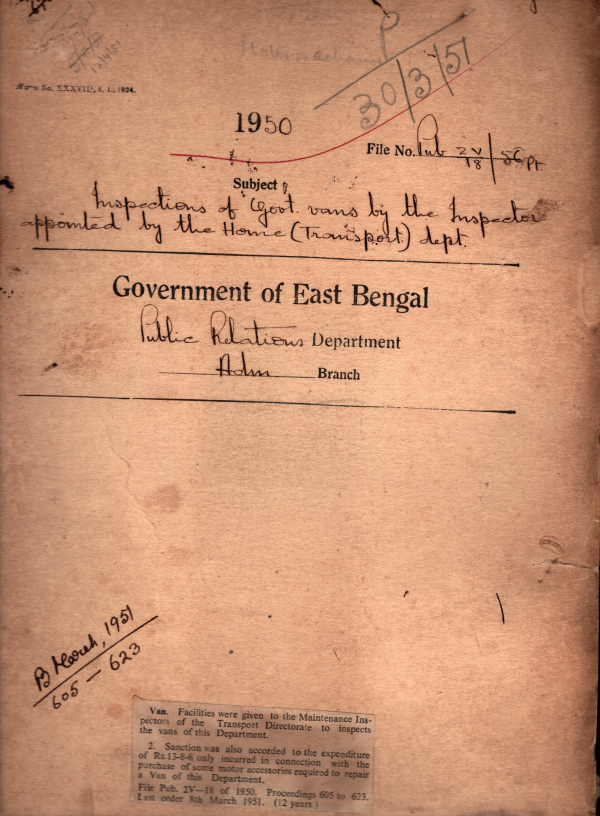 30/3/51
Form No. XXXVIII, S. I., 1924.
1950
File No. Pub 2V/18/50 Pt.
Subject
Inspections of Govt. vans by the Inspector
appointed by the Home (Transport) dept.
Government of East Bengal
Public Relations Department
Adm Branch
B March, 1951
605 — 623
Van. Facilities were given to the Maintenance Ins-
pectors of the Transport Directorate to inspects
the vans of this Department.
2. Sanction was also accorded to the expenditure
of Rs.13-8-6 only incurred in connection with the
purchase of some motor accessories required to repair
a Van of this Department.
File Pub. 2V—18 of 1950. Proceedings 605 to 623.
Last order 8th March 1951. (12 years.)